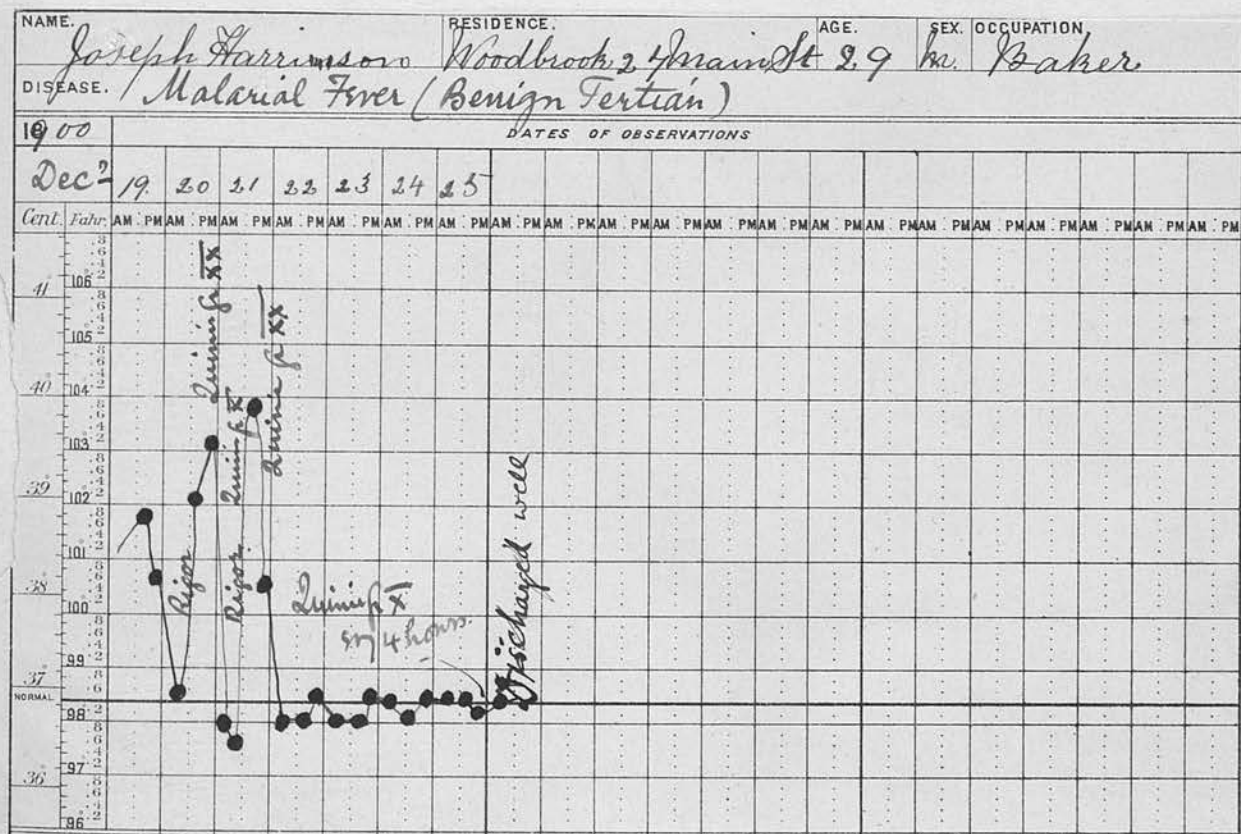 NAME. RESIDENCE. AGE. SEX. OCCUPATION.
Joseph Harrimson Woodbrook 24 Main St 29 M. Baker
DISEASE. Malarial Fever (Benign Tertian)
1900 DATES OF OBSERVATIONS
Dec 19 20 21 22 23 24 25
Cent. Fahr. AM PM AM PM AM PM AM PM AM PM AM PM AM PM AM PM AM PM AM PM AM PM AM PM AM PM AM PM AM PM AM PM AM PM AM PM AM PM AM PM AM PM
41° 106°
105°
40° 104°
103°
39° 102°
101°
38° 100°
99°
37°
NORMAL
98°
97°
36°
96
Rigor
Quinin gr XX
Rigor
Quinin gr X
Quinie gr XX
Quinie gr X
every 4 hours.
Discharged well